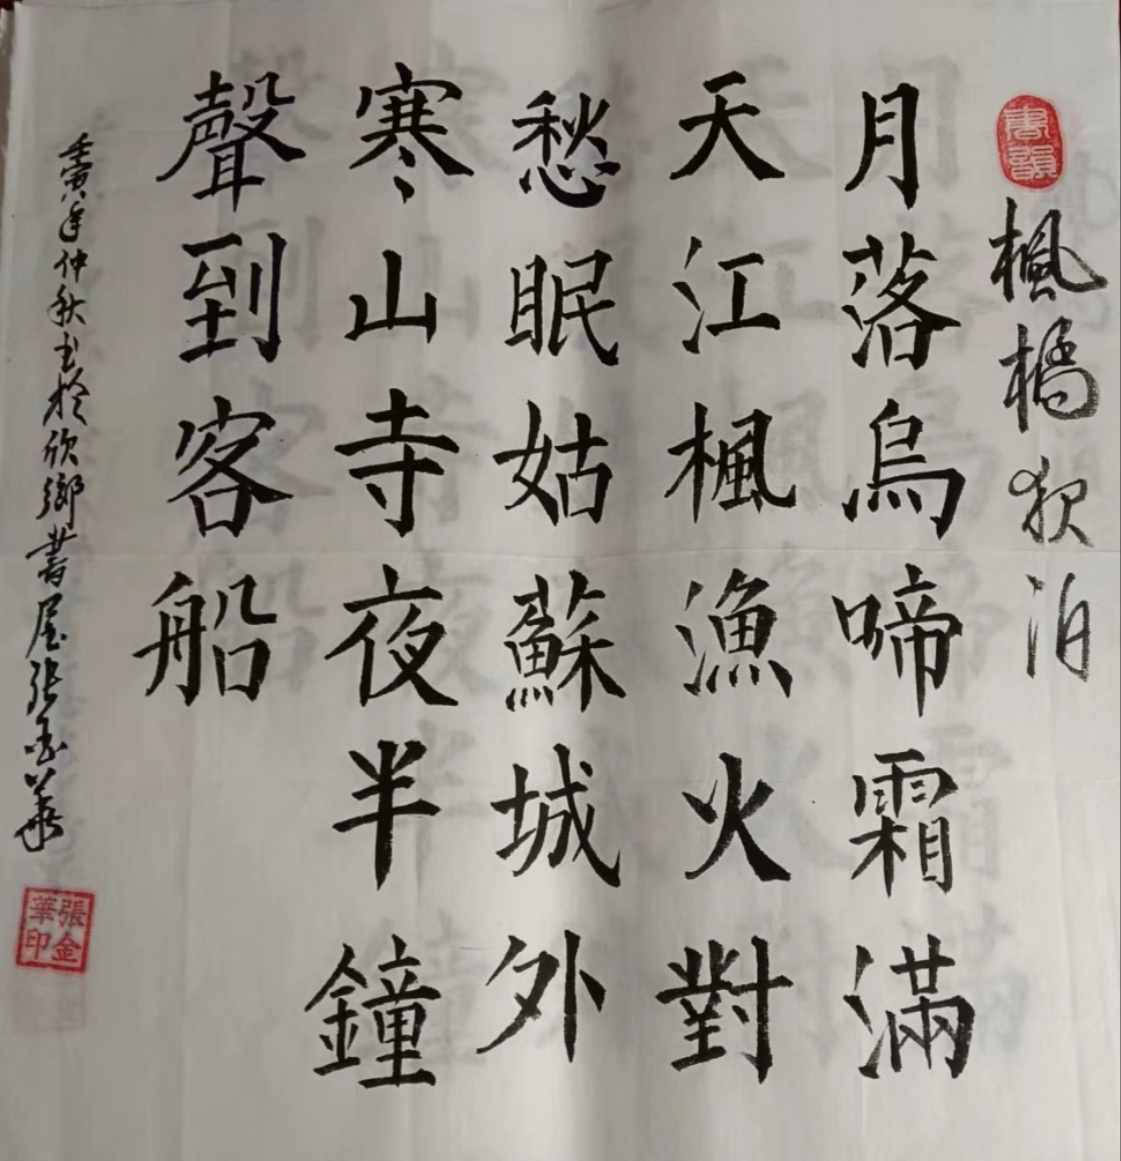 書韻
楓橋夜泊
月落烏啼霜滿
天江楓漁火對
愁眠姑蘇城外
寒山寺夜半鐘
聲到客船
壬寅年仲秋书於欣鄉書屋張金華
張金華印